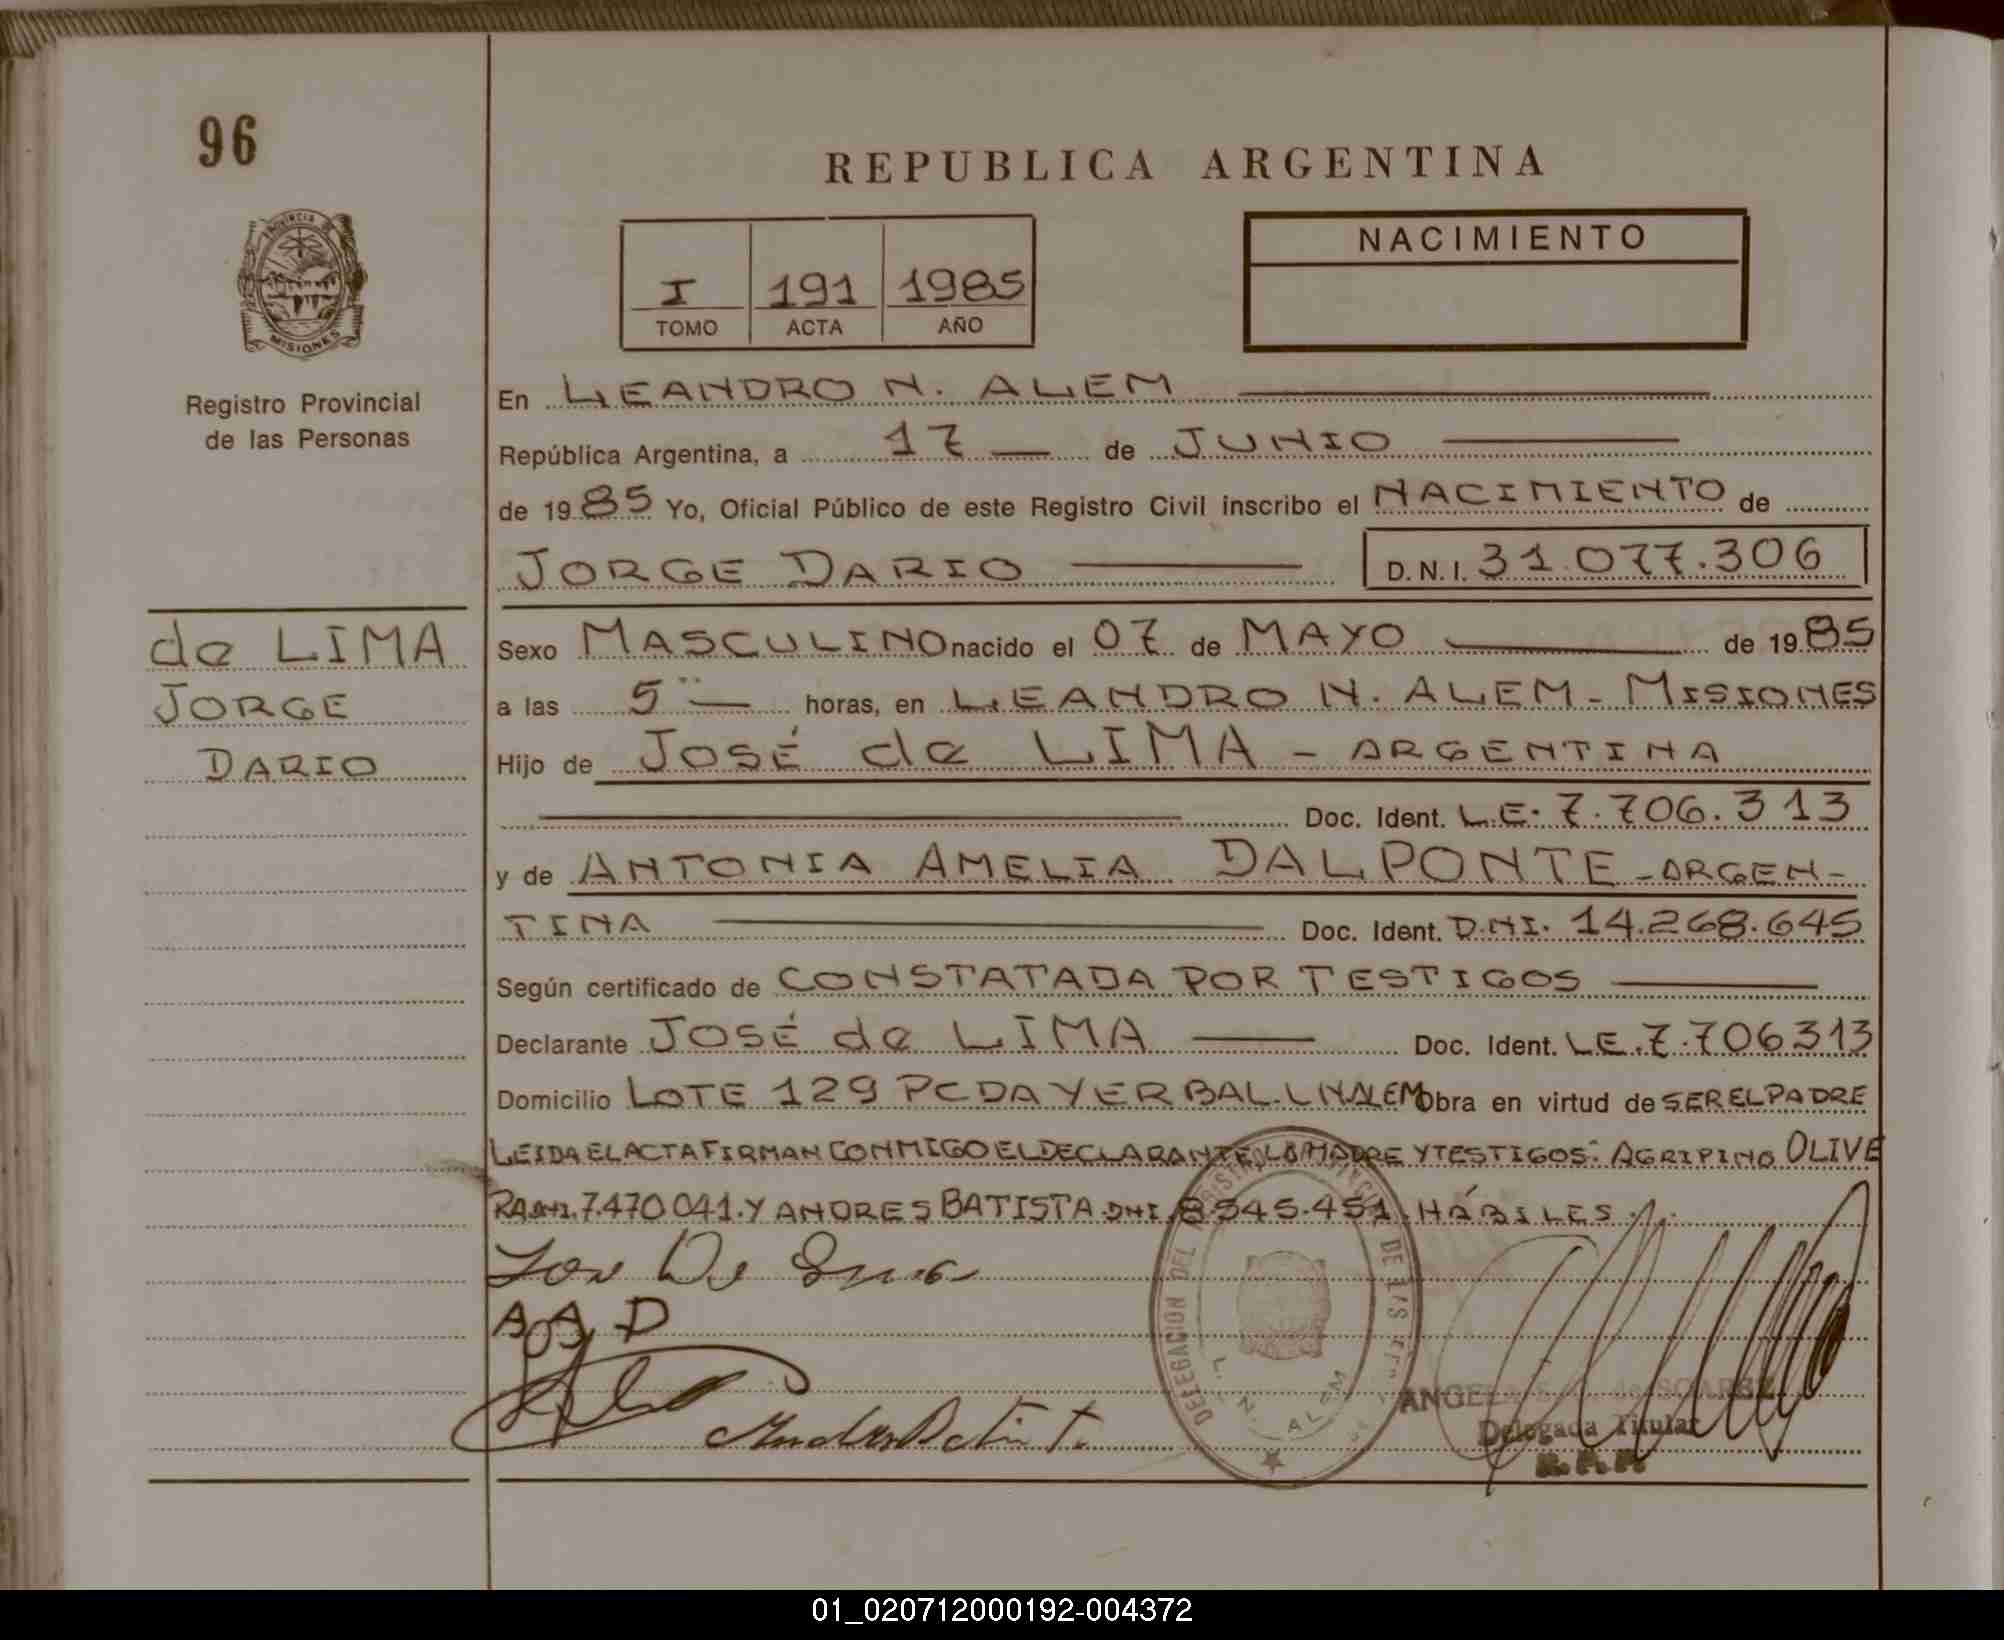 96
REPUBLICA ARGENTINA
PROVINCIA DE
MISIONES
Registro Provincial
de las Personas
I 191 1985
TOMO ACTA AÑO
NACIMIENTO
En LEANDRO N. ALEM
República Argentina, a 17 de JUNIO
de 1985 Yo, Oficial Público de este Registro Civil inscribo el NACIMIENTO de
JORGE DARIO D.N.I. 31.077.306
de LIMA
JORGE
DARIO
Sexo MASCULINO nacido el 07 de MAYO de 1985
a las 5 horas, en LEANDRO N. ALEM - MISIONES
Hijo de JOSÉ de LIMA - ARGENTINA
Doc. Ident. L.E. 7.706.313
y de ANTONIA AMELIA DALPONTE - ARGEN-
TINA Doc. Ident. D.N.I. 14.268.645
Según certificado de CONSTATADA POR TESTIGOS
Declarante JOSÉ de LIMA Doc. Ident. L.E. 7.706313
Domicilio LOTE 129 PCDA YERBAL. L N ALEM Obra en virtud de SER EL PADRE
LEIDA EL ACTA FIRMAN CONMIGO EL DECLARANTE, LA MADRE Y TESTIGOS: AGRIPINO OLIVE
RA DNI. 7.470.041. Y ANDRES BATISTA DNI. 8.545.451 HÁBILES.
A A D
DELEGACION DEL REGISTRO PROVINCIAL DE LAS
L. N. ALEM
ANGELA de SOAREZ
Delegada Titular
R.P.P.
01_020712000192-004372